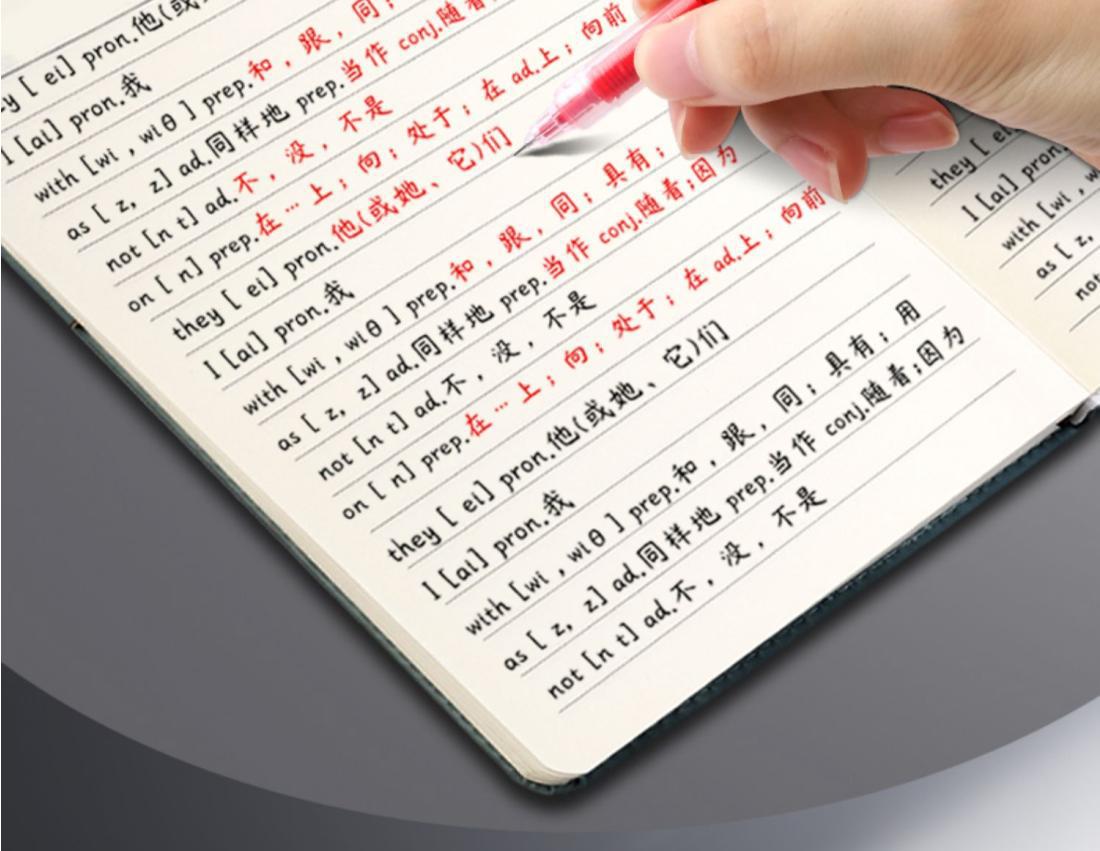 ey [ ei] pron.他(或
I [ai] pron.我
with [wi , wiθ ] prep.和，跟，同；
as [ z, z] ad.同样地 prep.当作 conj.随着
not [n t] ad.不，没，不是
on [ n] prep.在…上；向；处于；在 ad.上；向前
they [ ei] pron.他(或她、它)们
I [ai] pron.我
with [wi , wiθ ] prep.和，跟，同；具有；
as [ z, z] ad.同样地 prep.当作 conj.随着;因为
not [n t] ad.不，没，不是
on [ n] prep.在…上；向；处于；在 ad.上；向前
they [ ei] pron.他(或她、它)们
I [ai] pron.我
with [wi , wiθ ] prep.和，跟，同；具有；用
as [ z, z] ad.同样地 prep.当作 conj.随着;因为
not [n t] ad.不，没，不是
they [ ei]
I [ai] pron.
with [wi , w
as [ z,
not